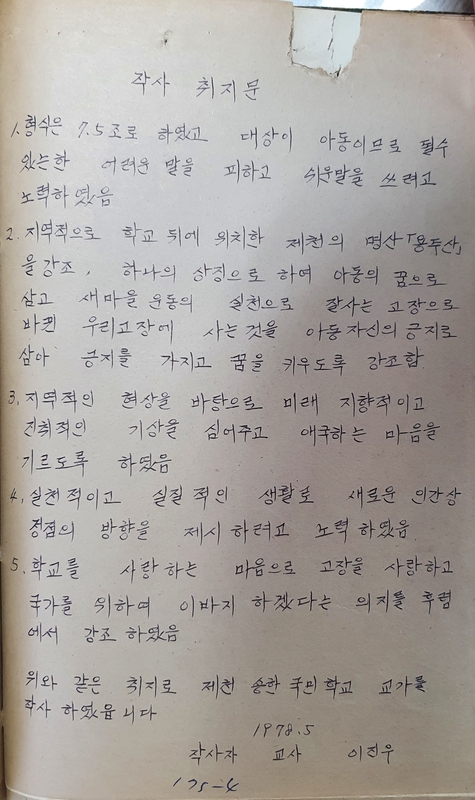 작사 취지문
1. 형식은 7.5조로 하였고 대상이 아동이므로 될수
있는한 어려운 말을 피하고 쉬운말을 쓰려고
노력하였음
2. 지역적으로 학교 뒤에 위치한 제천의 명산「용두산」
을 강조, 하나의 상징으로 하여 아동의 꿈으로
삼고 새마을 운동의 실천으로 잘사는 고장으로
바뀐 우리고장에 사는것을 아동자신의 긍지로
삼아 긍지를 가지고 꿈을 키우도록 강조함
3. 지역적인 현상을 바탕으로 미래 지향적이고
진취적인 기상을 심어주고 애국하는 마음을
기르도록 하였음
4. 실천적이고 실질적인 생활로 새로운 인간상
정점의 방향을 제시하려고 노력하였음
5. 학교를 사랑하는 마음으로 고장을 사랑하고
국가를 위하여 이바지 하겠다는 의지를 후렴
에서 강조 하였음
위와 같은 취지로 제천 송한 국민학교 교가를
작사 하였읍니다
1978.5
작사자 교사 이진우
175-4